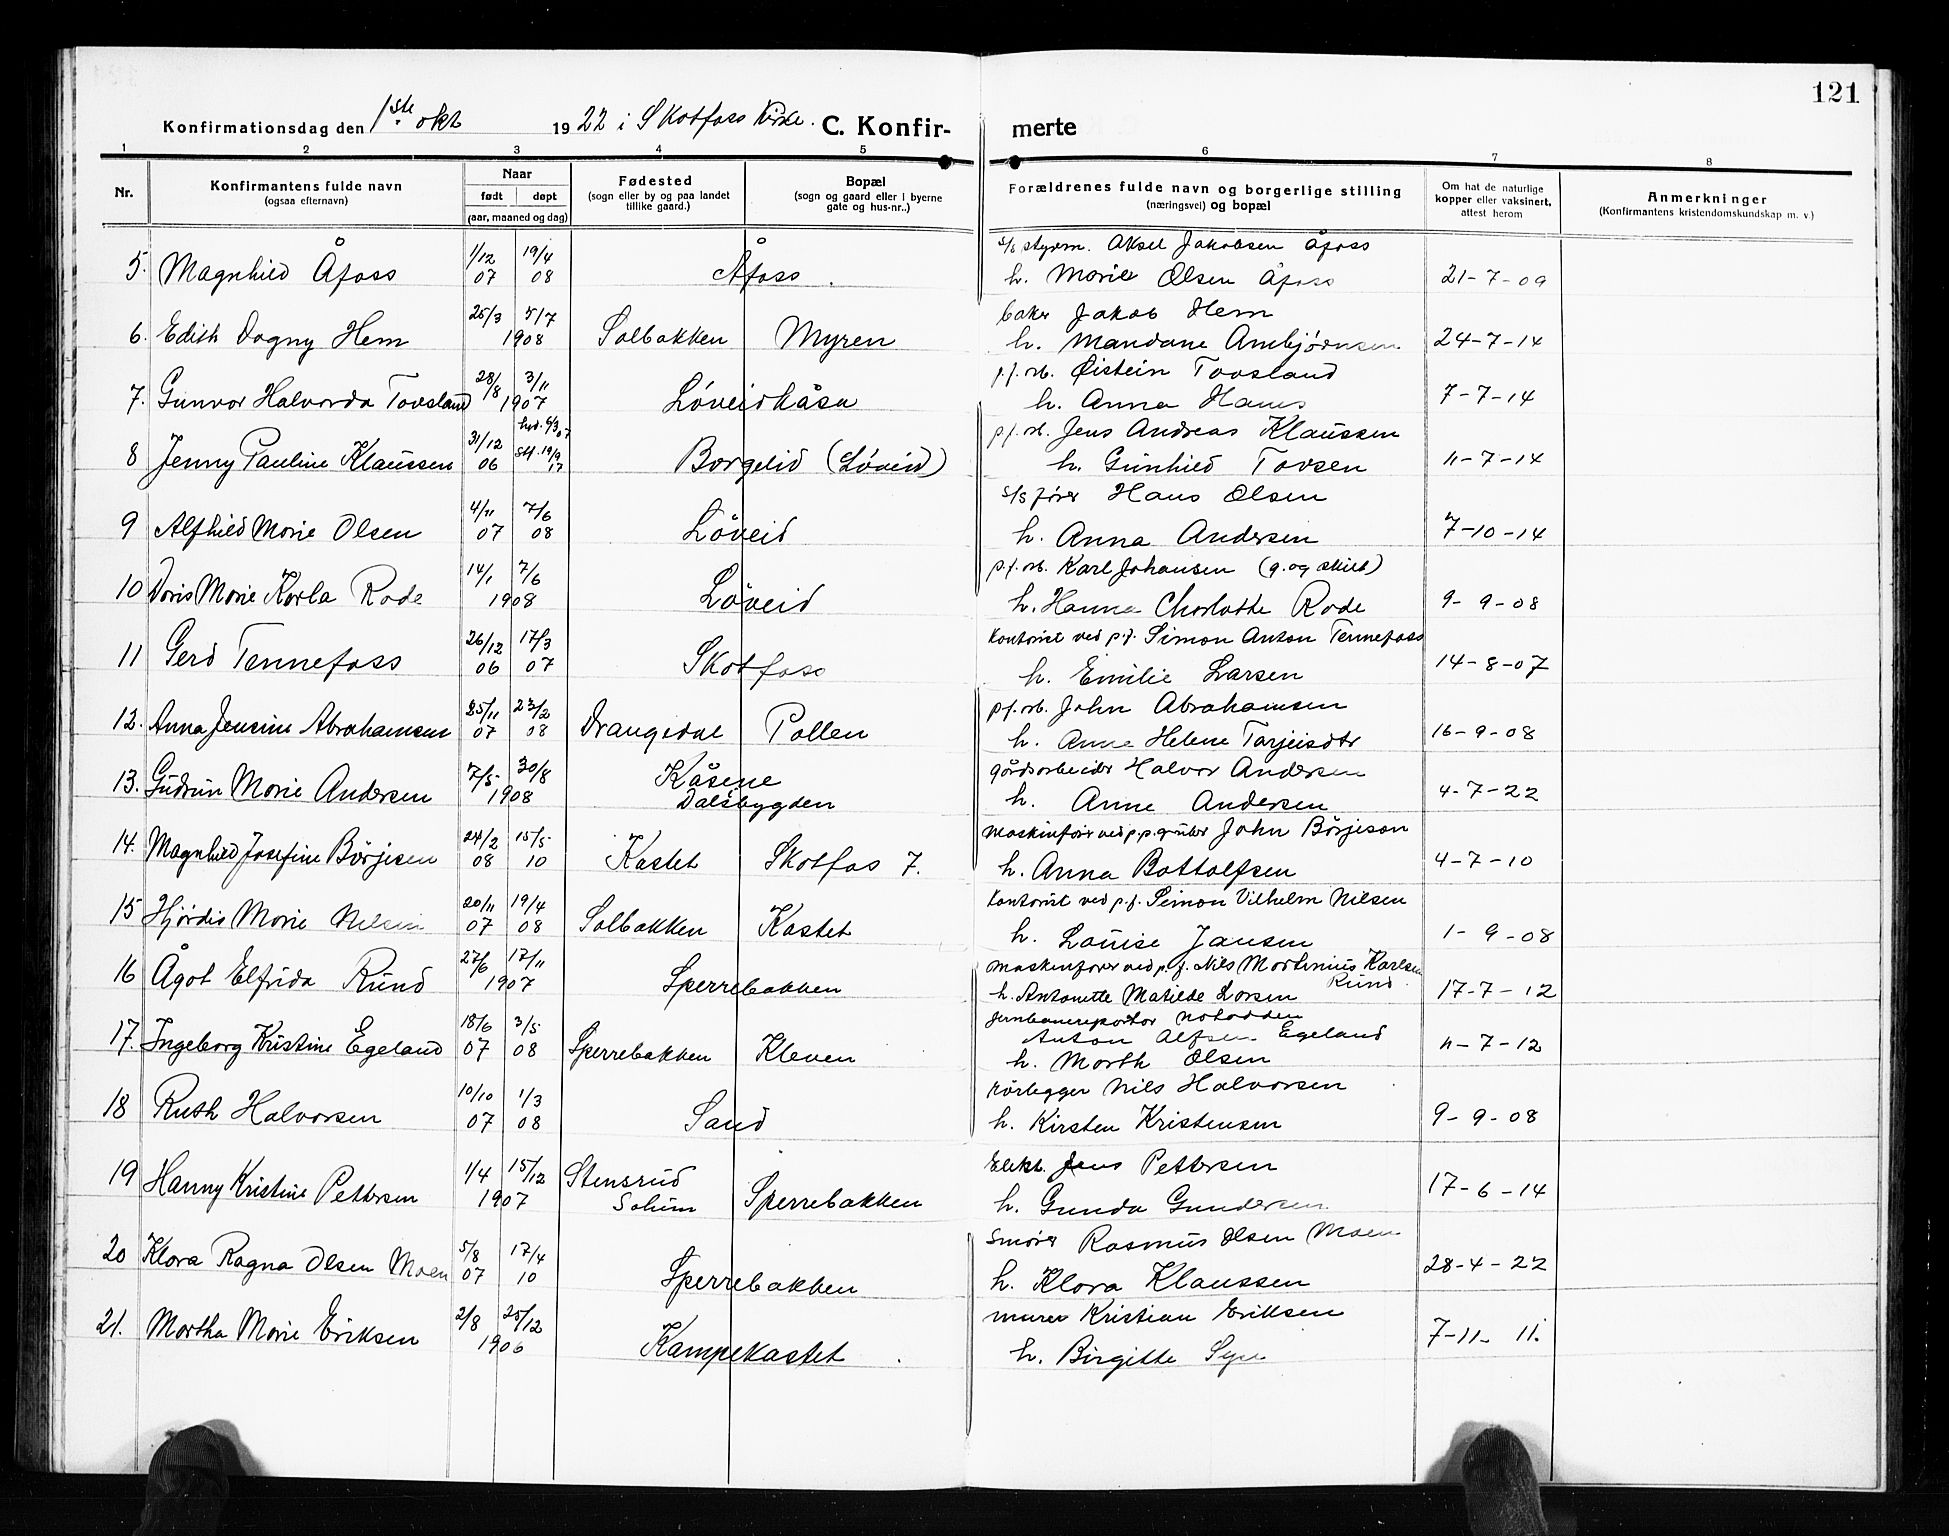 121
Konfirmationsdag den 1ste okt 1922 i Skotfoss Kirke. C. Konfirmerte
1 2 3 4 5 6 7 8
Nr.
Konfirmantens fulde navn
(ogsaa efternavn)
Naar
født døpt
(aar, maaned og dag)
Fødested
(sogn eller by og paa landet
tillike gaard.)
Bopæl
(sogn og gaard eller i byerne
gate og hus-nr..)
Forældrenes fulde navn og borgerlige stilling
(næringsvei) og bopæl
Om hat de naturlige
kopper eller vaksinert,
attest herom
Anmerkninger
(Konfirmantens kristendomskundskap m. v.)
s/s styrm. Aksel Jakobsen Åfoss
5. Magnhild Åfoss 1/12 07 19/4 08 Åfoss. h. Marie Olsen Åfoss 21-7-09
baker Jakob Hem
6. Edith Dagny Hem 25/3 5/7 1908 Solbakken Myren h. Mandane Ambjørnsen 24-7-14
p.f. arb. Øistein Tovsland
7. Gunvor Halvorda Tovsland 28/8 3/11 1907 Løveidkåsa h. Anna Hans 7-7-14
p.f. arb. Jens Andreas Klaussen
8 Jenny Pauline Klaussen 31/12 06 Borgelid (Løveid) h. Gunhild Tovsen 11-7-14
s/s fører Hans Olsen
9 Alfhild Marie Olsen 4/11 07 7/6 08 Løveid h. Anna Andersen 7-10-14
p.f. arb. Karl Johansen (g. og skilt)
10 Doris Marie Karla Rode 14/1 7/6 1908 Løveid h. Hanna Charlotte Rode 9-9-08
Kontorist ved p.f. Simon Anton Tennefoss
11 Gerd Tennefoss 26/12 06 17/3 07 Skotfoss h. Emilie Larsen 14-8-07
p.f. arb. John Abrahamsen
12. Anna Jensine Abrahamsen 25/11 07 23/2 08 Drangedal Pollen h. Anne Helene Tarjeisdtr 16-9-08
gårdsarbeider Halvor Andersen
13. Gudrun Marie Andersen 7/5 30/8 1908 Kåsene Dalsbygden h. Anne Andersen 4-7-22
Maskinfører ved p.p. gruber John Børjeson
14. Magnhild Josefine Børjesen 24/2 08 15/5 10 Kastet Skotfos 7. h. Anna Bottolfsen 4-7-10
Kontorist ved p.f. Simon Vilhelm Nilsen
15 Hjørdis Marie Nilsen 20/11 07 19/4 08 Solbakken Kastet h. Louise Jansen 1-9-08
Maskinfører ved p.f. Nils Martinius Karlsen Rund
16 Ågot Elfrida Rund 27/6 17/11 1907 Sperrebakken h. Antonette Matilde Larsen 17-7-12
Jernbanereparatør Notodden
Anton Alfsen Egeland
17. Ingeborg Kristine Egeland 18/6 07 3/5 08 Sperrebakken Kleven h. Marth Olsen 11-7-12
rørlegger Nils Halvorsen
18 Ruth Halvorsen 10/10 07 1/3 08 Sand h. Kirsten Kristensen 9-9-08
Elekt. Jens Pettersen
19 Hanny Kristine Pettersen 1/4 15/12 1907 Stensrud Solum Sperrebakken h. Gunda Gundersen 17-6-14
Smører Rasmus Olsen Moen
20 Klara Ragna Olsen Moen 5/8 07 17/4 10 Sperrebakken h. Klara Klaussen 28-4-22
murer Kristian Eriksen
21. Martha Marie Eriksen 2/8 25/12 1906 Kampekastet. h. Birgitte 7-11-11.